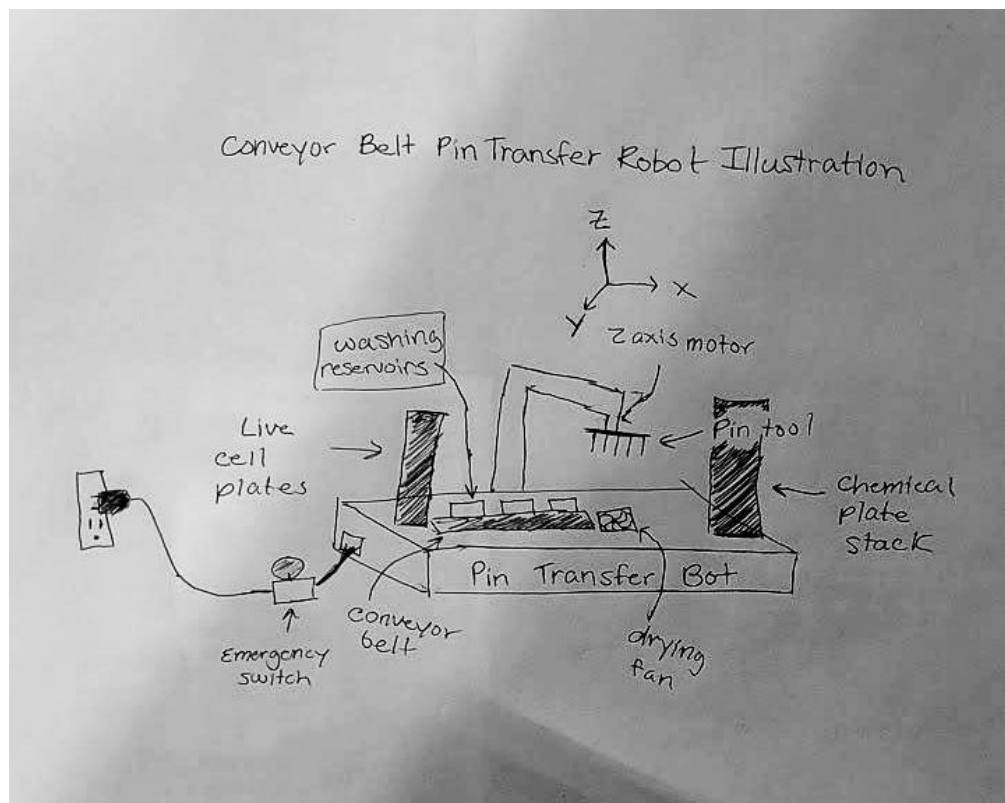 Conveyor Belt Pin Transfer Robot Illustration
Z
X
Y
Z axis motor
washing
reservoirs
Pin tool
Live
cell
plates
Chemical
plate
stack
Pin Transfer Bot
conveyor
belt
drying
fan
Emergency
switch